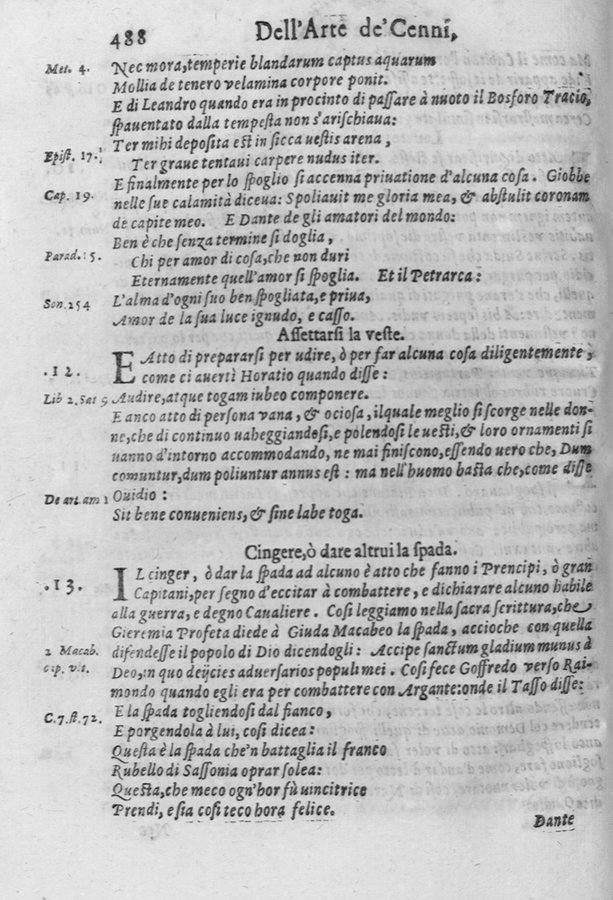 488 Dell'Arte de'Cenni,
Met. 4. Nec mora, temperie blandarum captus aquarum
Mollia de tenero velamina corpore ponit.
E di Leandro quando era in procinto di paſſare à nuoto il Bosforo Tracio,
ſpauentato dalla tempeſta non s'ariſchiaua:
Ter mihi depoſita eſt in ſicca ueſtis arena,
Epiſt. 17. Ter graue tentaui carpere nudus iter.
E finalmente per lo ſpoglio ſi accenna priuatione d'alcuna coſa. Giobbe
Cap. 19. nelle ſue calamità diceua: Spoliauit me gloria mea, & abſtulit coronam
de capite meo. E Dante de gli amatori del mondo:
Ben è che ſenza termine ſi doglia,
Parad. 15. Chi per amor di coſa, che non duri
Eternamente quell'amor ſi ſpoglia. Et il Petrarca:
Son. 254 L'alma d'ogni ſuo ben ſpogliata, e priua,
Amor de la ſua luce ignudo, e caſſo.
Aſſettarſi la veſte.
.12. E Atto di prepararſi per udire, ò per far alcuna coſa diligentemente,
come ci auertì Horatio quando diſſe:
Lib 2. Sat 9 Audire, atque togam iubeo componere.
E anco atto di perſona vana, & ocioſa, il quale meglio ſi ſcorge nelle don-
ne, che di continuo uaheggiandoſi, e polendoſi le ueſti, & loro ornamenti ſi
uanno d'intorno accommodando, ne mai finiſcono, eſſendo uero che, Dum
comuntur, dum poliuntur annus eſt: ma nell'huomo baſta che, come diſſe
De art. am 1 Ouidio:
Sit bene conueniens, & ſine labe toga.
Cingere, ò dare altrui la ſpada.
.13. IL cinger, ò dar la ſpada ad alcuno è atto che fanno i Prencipi, ò gran
Capitani, per ſegno d'eccitar à combattere, e dichiarare alcuno habile
alla guerra, e degno Caualiere. Coſi leggiamo nella ſacra ſcrittura, che
Gieremia Profeta diede à Giuda Macabeo la ſpada, accioche con quella
2 Macab. difendeſſe il popolo di Dio dicendogli: Accipe ſanctum gladium munus à
cap. vlt. Deo, in quo deijcies aduerſarios populi mei. Coſi fece Goffredo verſo Rai-
mondo quando egli era per combattere con Argante: onde il Taſſo diſſe:
C. 7. ſt. 72. E la ſpada togliendoſi dal fianco,
E porgendola à lui, coſi dicea:
Queſta è la ſpada che'n battaglia il franco
Rubello di Saſſonia oprar ſolea:
Queſta, che meco ogn'hor fù uincitrice
Prendi, e ſia coſi teco hora felice.
Dante